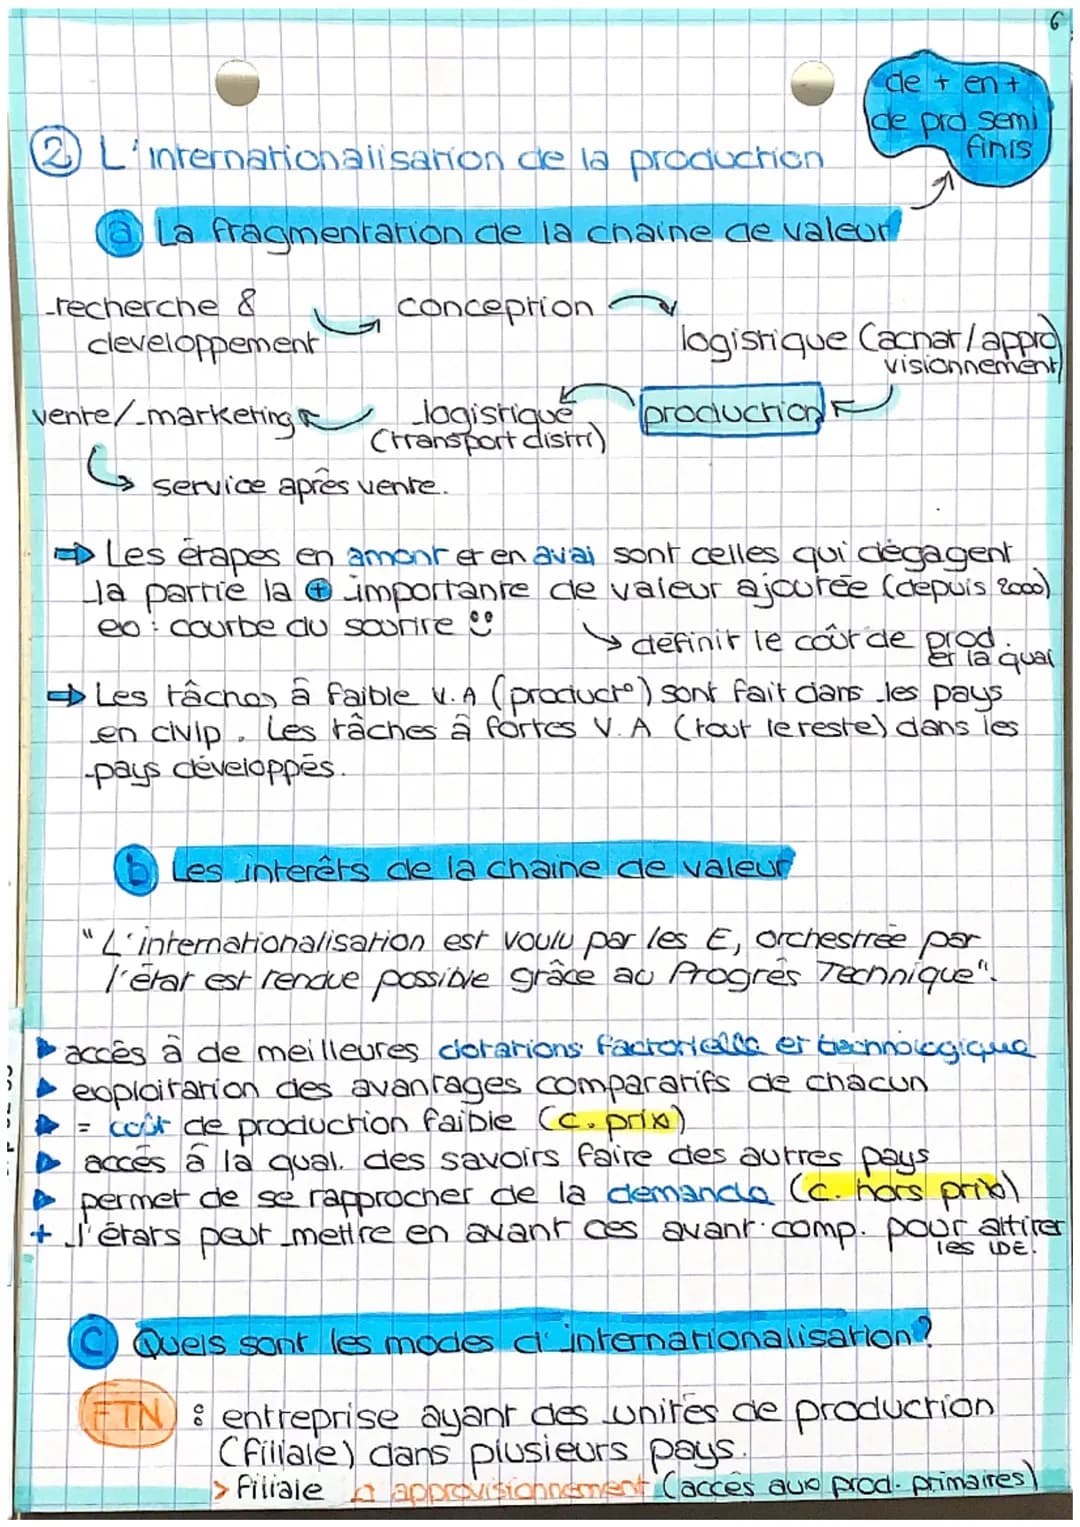 6
de + en +
de prd semi
finis
② L'internationalisation de la production
ⓐ La fragmentation de la chaine de valeur
recherche &
developpement
conception
logistique (achat/appro
visionnement)
production
logistique
(transport distri)
vente/marketing
service après vente.
⇨ Les étapes en amont et en aval sont celles qui dégagent
la partie la ⊕ importante de valeur ajoutée (depuis 2000)
ex : courbe du sourire
↘ définir le coût de prod.
et la qual
⇨ Les tâches à faible V.A (product°) sont fait dans les pays
en civlp. Les tâches à fortes V.A (tout le reste) dans les
pays développés.
ⓑ Les interêts de la chaine de valeur
"L'internationalisation est voulu par les E, orchestrée par
l'état est rendue possible grâce au Progrès Technique".
▶ accès à de meilleures dotations factorielle et technologique
▶ exploitation des avantages comparatifs de chacun
▶ = coût de production faible (c. prix)
▶ accès à la qual. des savoirs faire des autres pays
▶ permet de se rapprocher de la demande (c. hors prix)
+ l'états peut mettre en avant ces avant. comp. pour attirer
les IDE.
ⓒ Quels sont les modes d'internationalisation ?
FTN : entreprise ayant des unités de production
(filiale) dans plusieurs pays.
> filiale approvisionnement (accès aux prod. primaires)